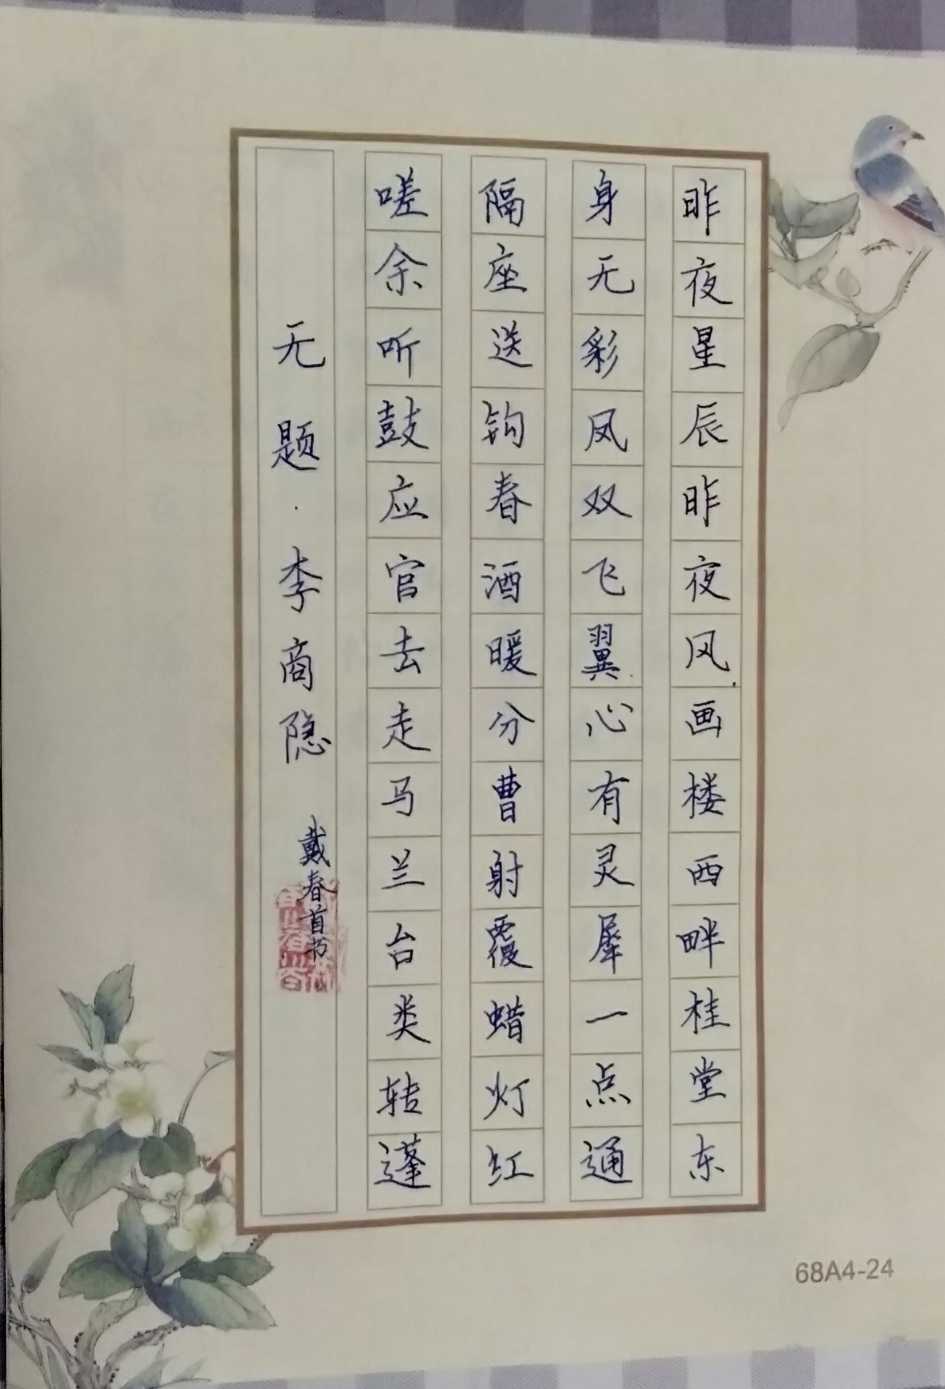 昨夜星辰昨夜风画楼西畔桂堂东
身无彩凤双飞翼心有灵犀一点通
隔座送钩春酒暖分曹射覆蜡灯红
嗟余听鼓应官去走马兰台类转蓬
无题·李商隐
戴春首书
68A4-24